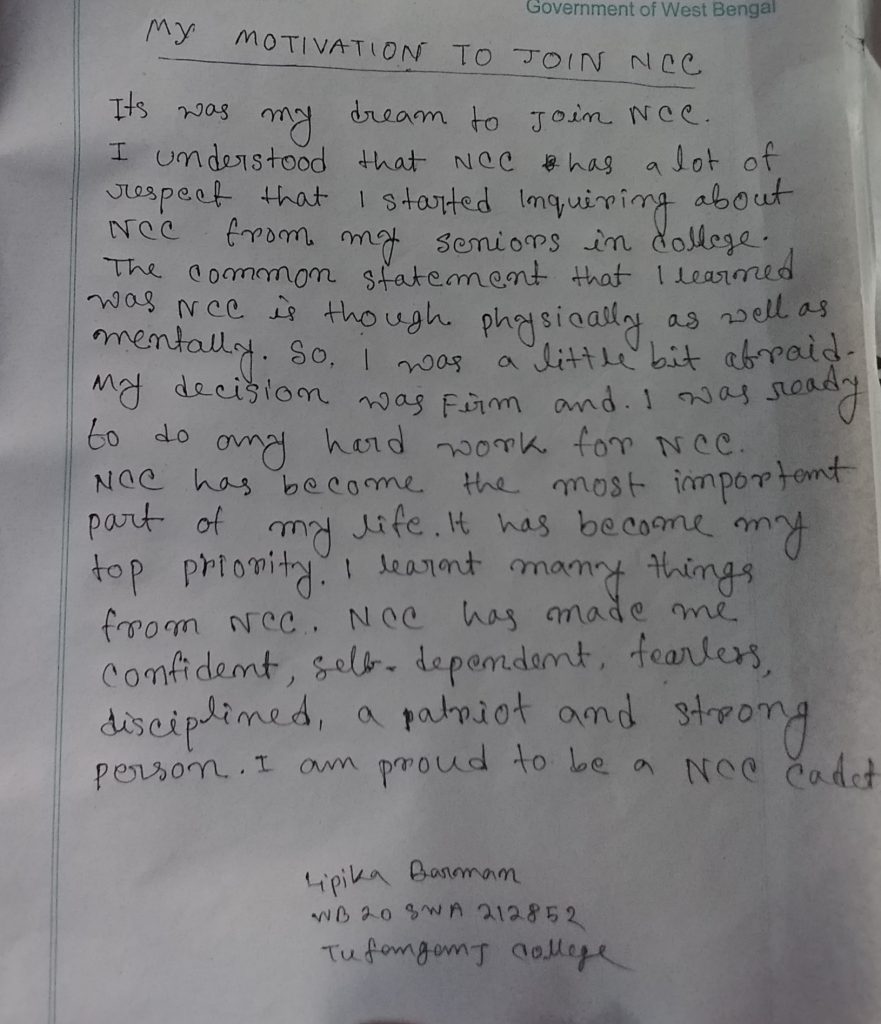 Government of West Bengal
My MOTIVATION TO JOIN NCC
Its was my dream to Join NCC.
I understood that NCC has a lot of
respect that I started Inquiring about
NCC from my seniors in College.
The common statement that I learned
was NCC is though physically as well as
mentally. So, I was a little bit afraid.
My decision was Firm and. I was ready
to do any hard work for NCC.
NCC has become the most important
part of my life. It has become my
top priority. I learnt many things
from NCC. NCC has made me
confident, self-dependent, fearless,
disciplined, a patriot and strong
person. I am proud to be a NCC Cadet
Lipika Barman
WB 20 SWA 212852
Tufanganj College